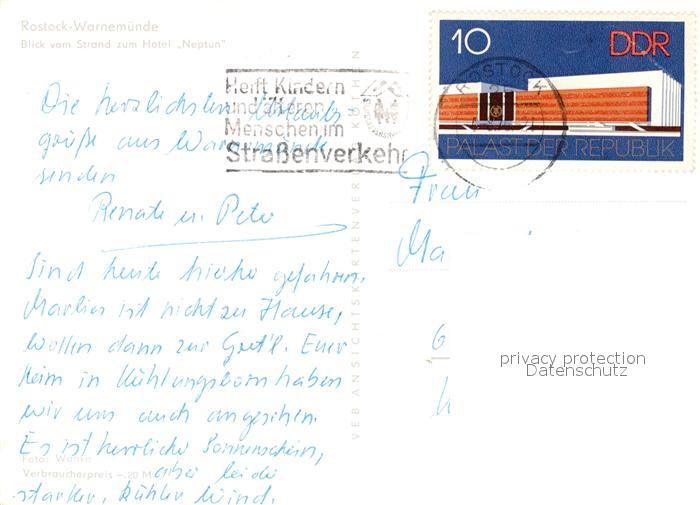 Rostock-Warnemünde
Blick vom Strand zum Hotel „Neptun"
10 DDR
PALAST DER REPUBLIK
ROSTOCK
Helft Kindern
und älteren
Menschen im
Straßenverkehr
Die herzlichsten Urlaubs
grüße aus Warnemünde
senden
Renate u. Peter
Sind heute hierher gefahren,
Marlies ist nicht zu Hause,
wollen dann zur Gretl. Euer
Heim in Kühlungsborn haben
wir uns auch angesehen.
Es ist herrlicher Sonnenschein,
aber leider
starker, kühler Wind.
Foto: Wanke
Verbraucherpreis –,20 M
VEB ANSICHTSKARTENVER KÖTHEN
Frau
Ma
privacy protection
Datenschutz